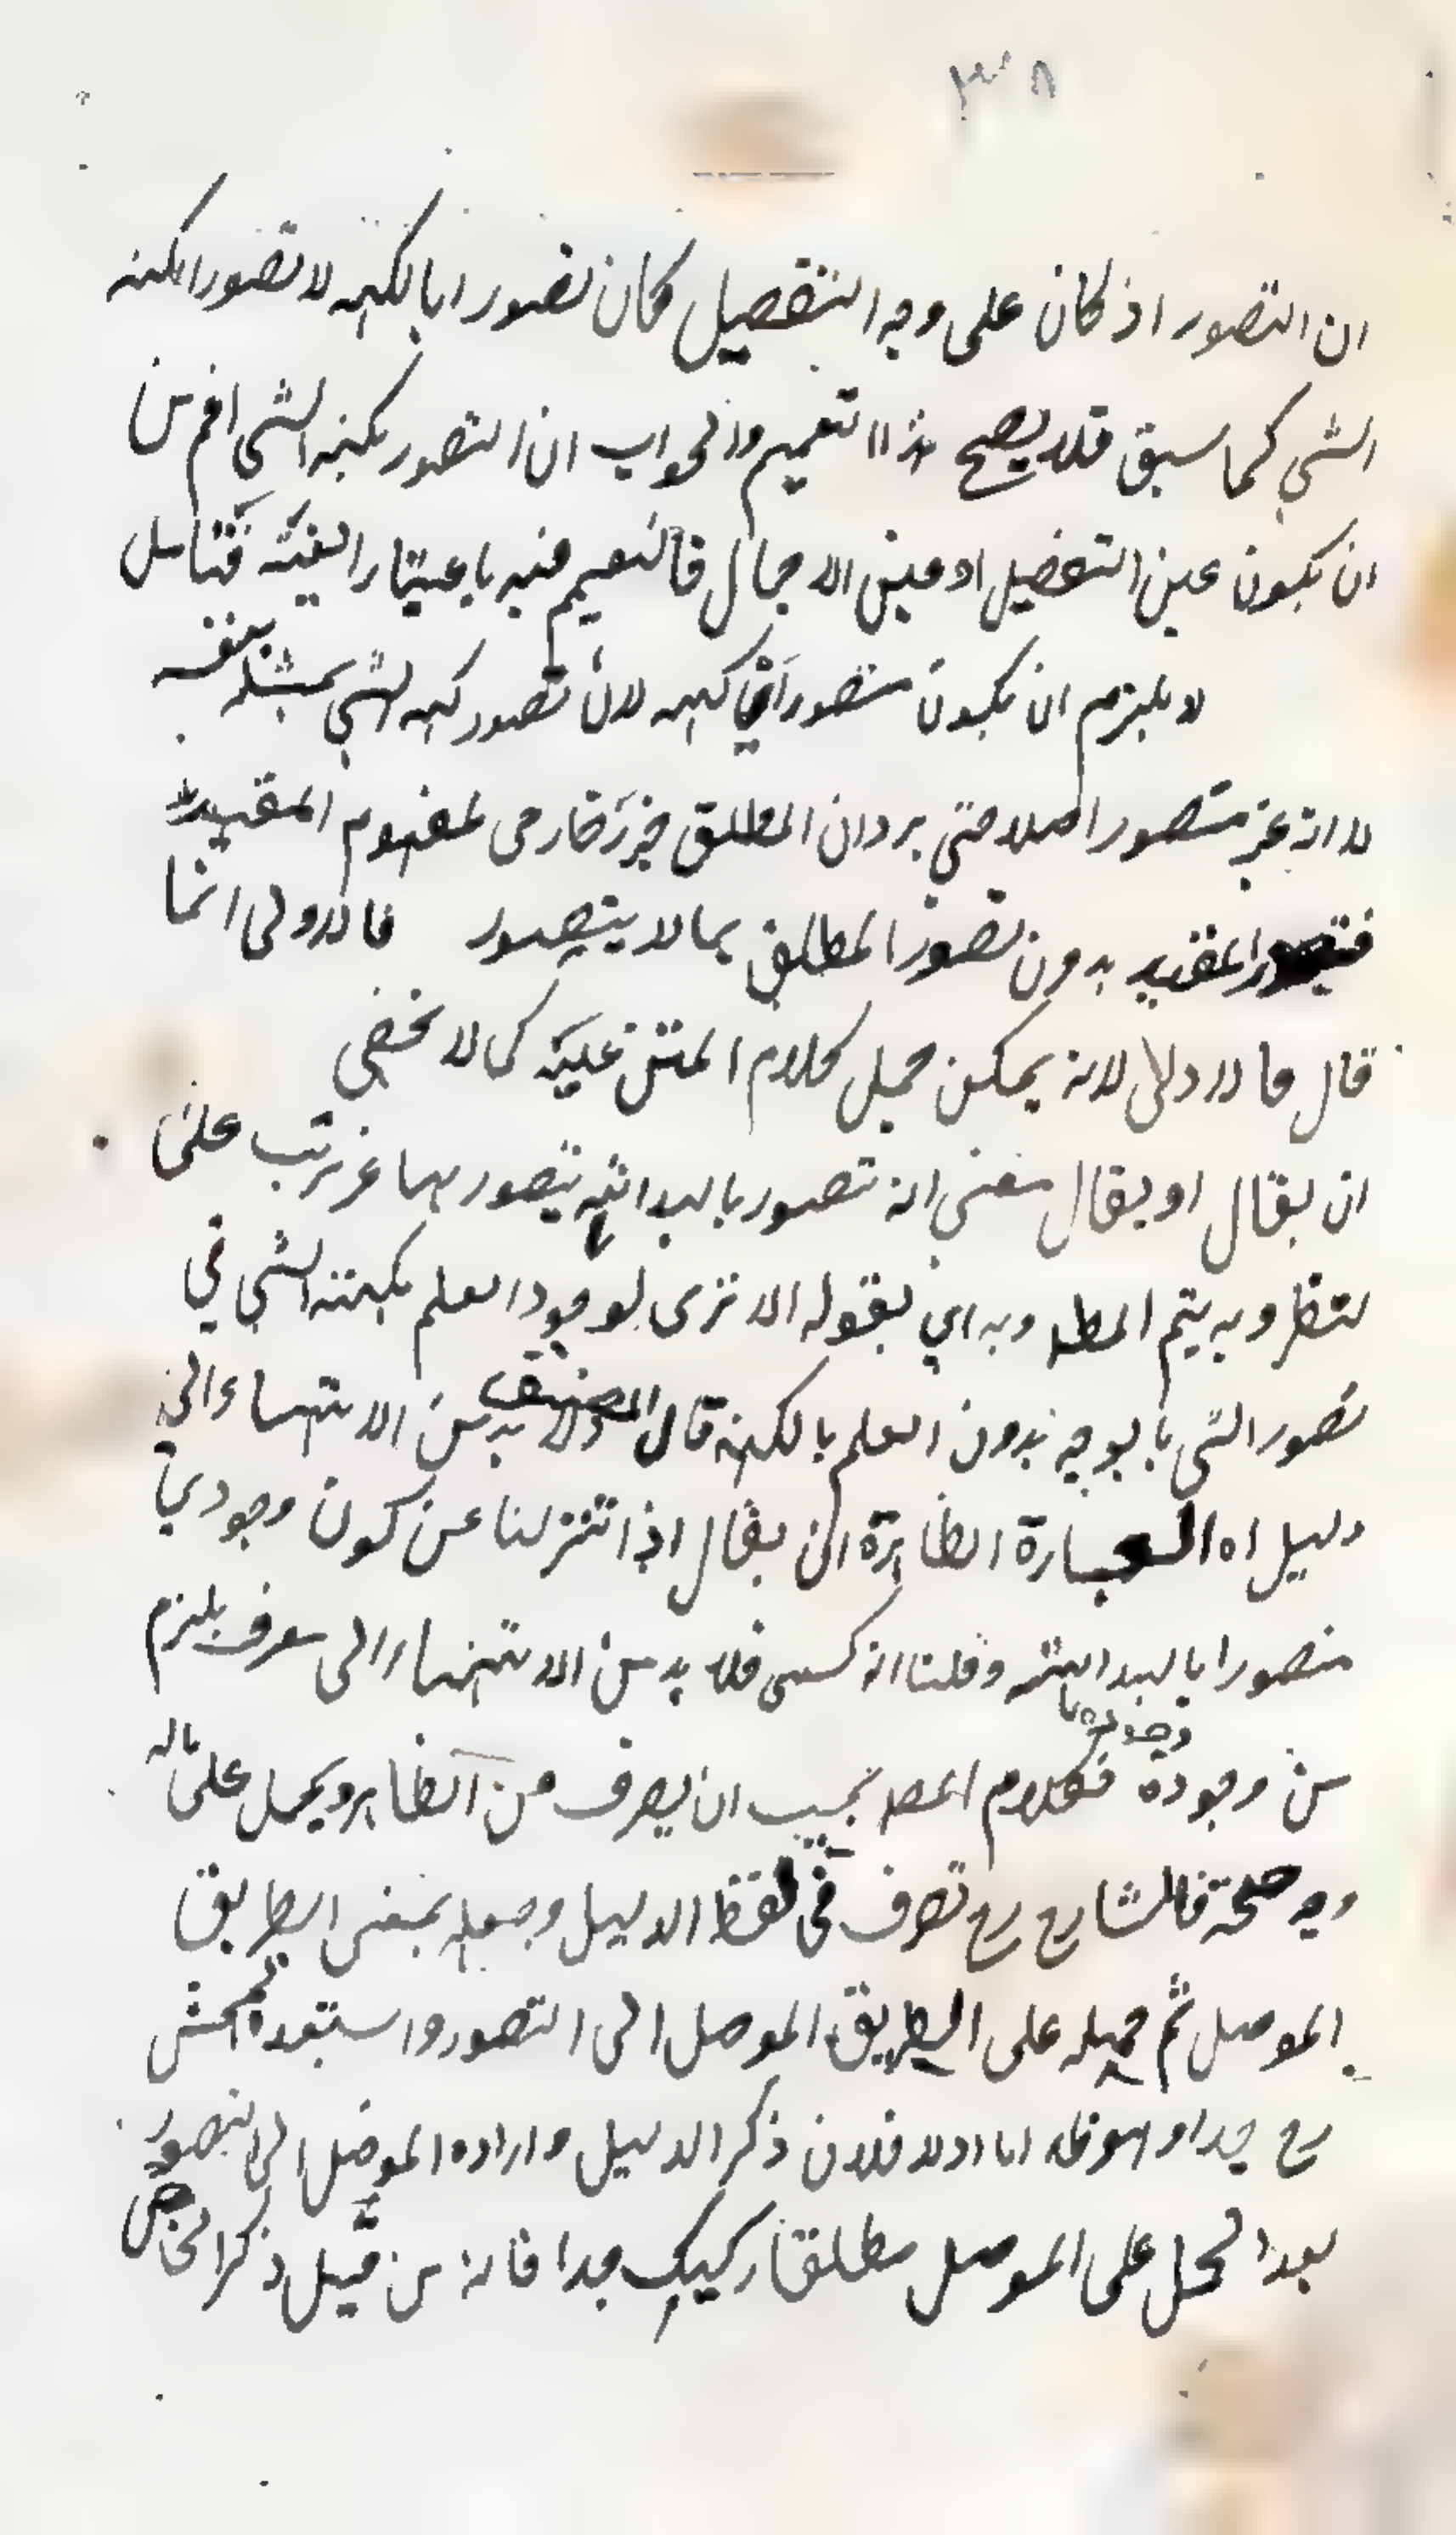 ٣٨
ان التصور اذ كان على وجه التفصيل كان تصورا بالكنه لا تصورا بكنه
الشي كما سبق فلا يصح هذا التعميم والجواب ان التصور بكنه الشي اعم من
ان يكون عين التفصيل او عين الاجمال فالتعميم فيه باعتبار
لا يلزم ان يكون متصورا كنهه لان تصور كنه الشي بنفسه
لا انه غير متصور اصلا حتى يرد ان المطلق جزء خارجى لمفهوم المقيد
فتصور المقيد بدون تصور المطلق مما لا يتصور فالاولى انما
قال فالاولى لانه يمكن حمل كلام المتن عليه كما لا يخفى
ان يقال او يقال معنى انه تصور بالبداهة يتصور بها غير ترتب على
نظر وبه يتم المط وبه اي بقوله الا ترى لوجود العلم بكنه الشي في
تصور الشي بالوجه بدون العلم بالكنه قال المصنف لابد من الانتهاء الى
دليل اه العبارة الظاهرة ان يقال اذا تنزلنا عن كون وجودي
متصورا بالبداهة وقلنا انه كسبى فلا بد من الانتهاء الى معرف يلزم
من وجوده وجوده فكلام المص يجب ان يصرف عن الظاهر ويحمل على ماله
وجه صحة فالشارح رح تصرف في لفظ الدليل وجعله بمعنى الطريق
الموصل ثم حمله على الطريق الموصل الى التصور واستبعده المحش
رح جدا وهو فله اما اولا فلان ذكر الدليل واراده الموصل الى التصور
بعد الحمل على الموصل مطلقا ركيك جدا فانه من قبيل ذكر الخاص